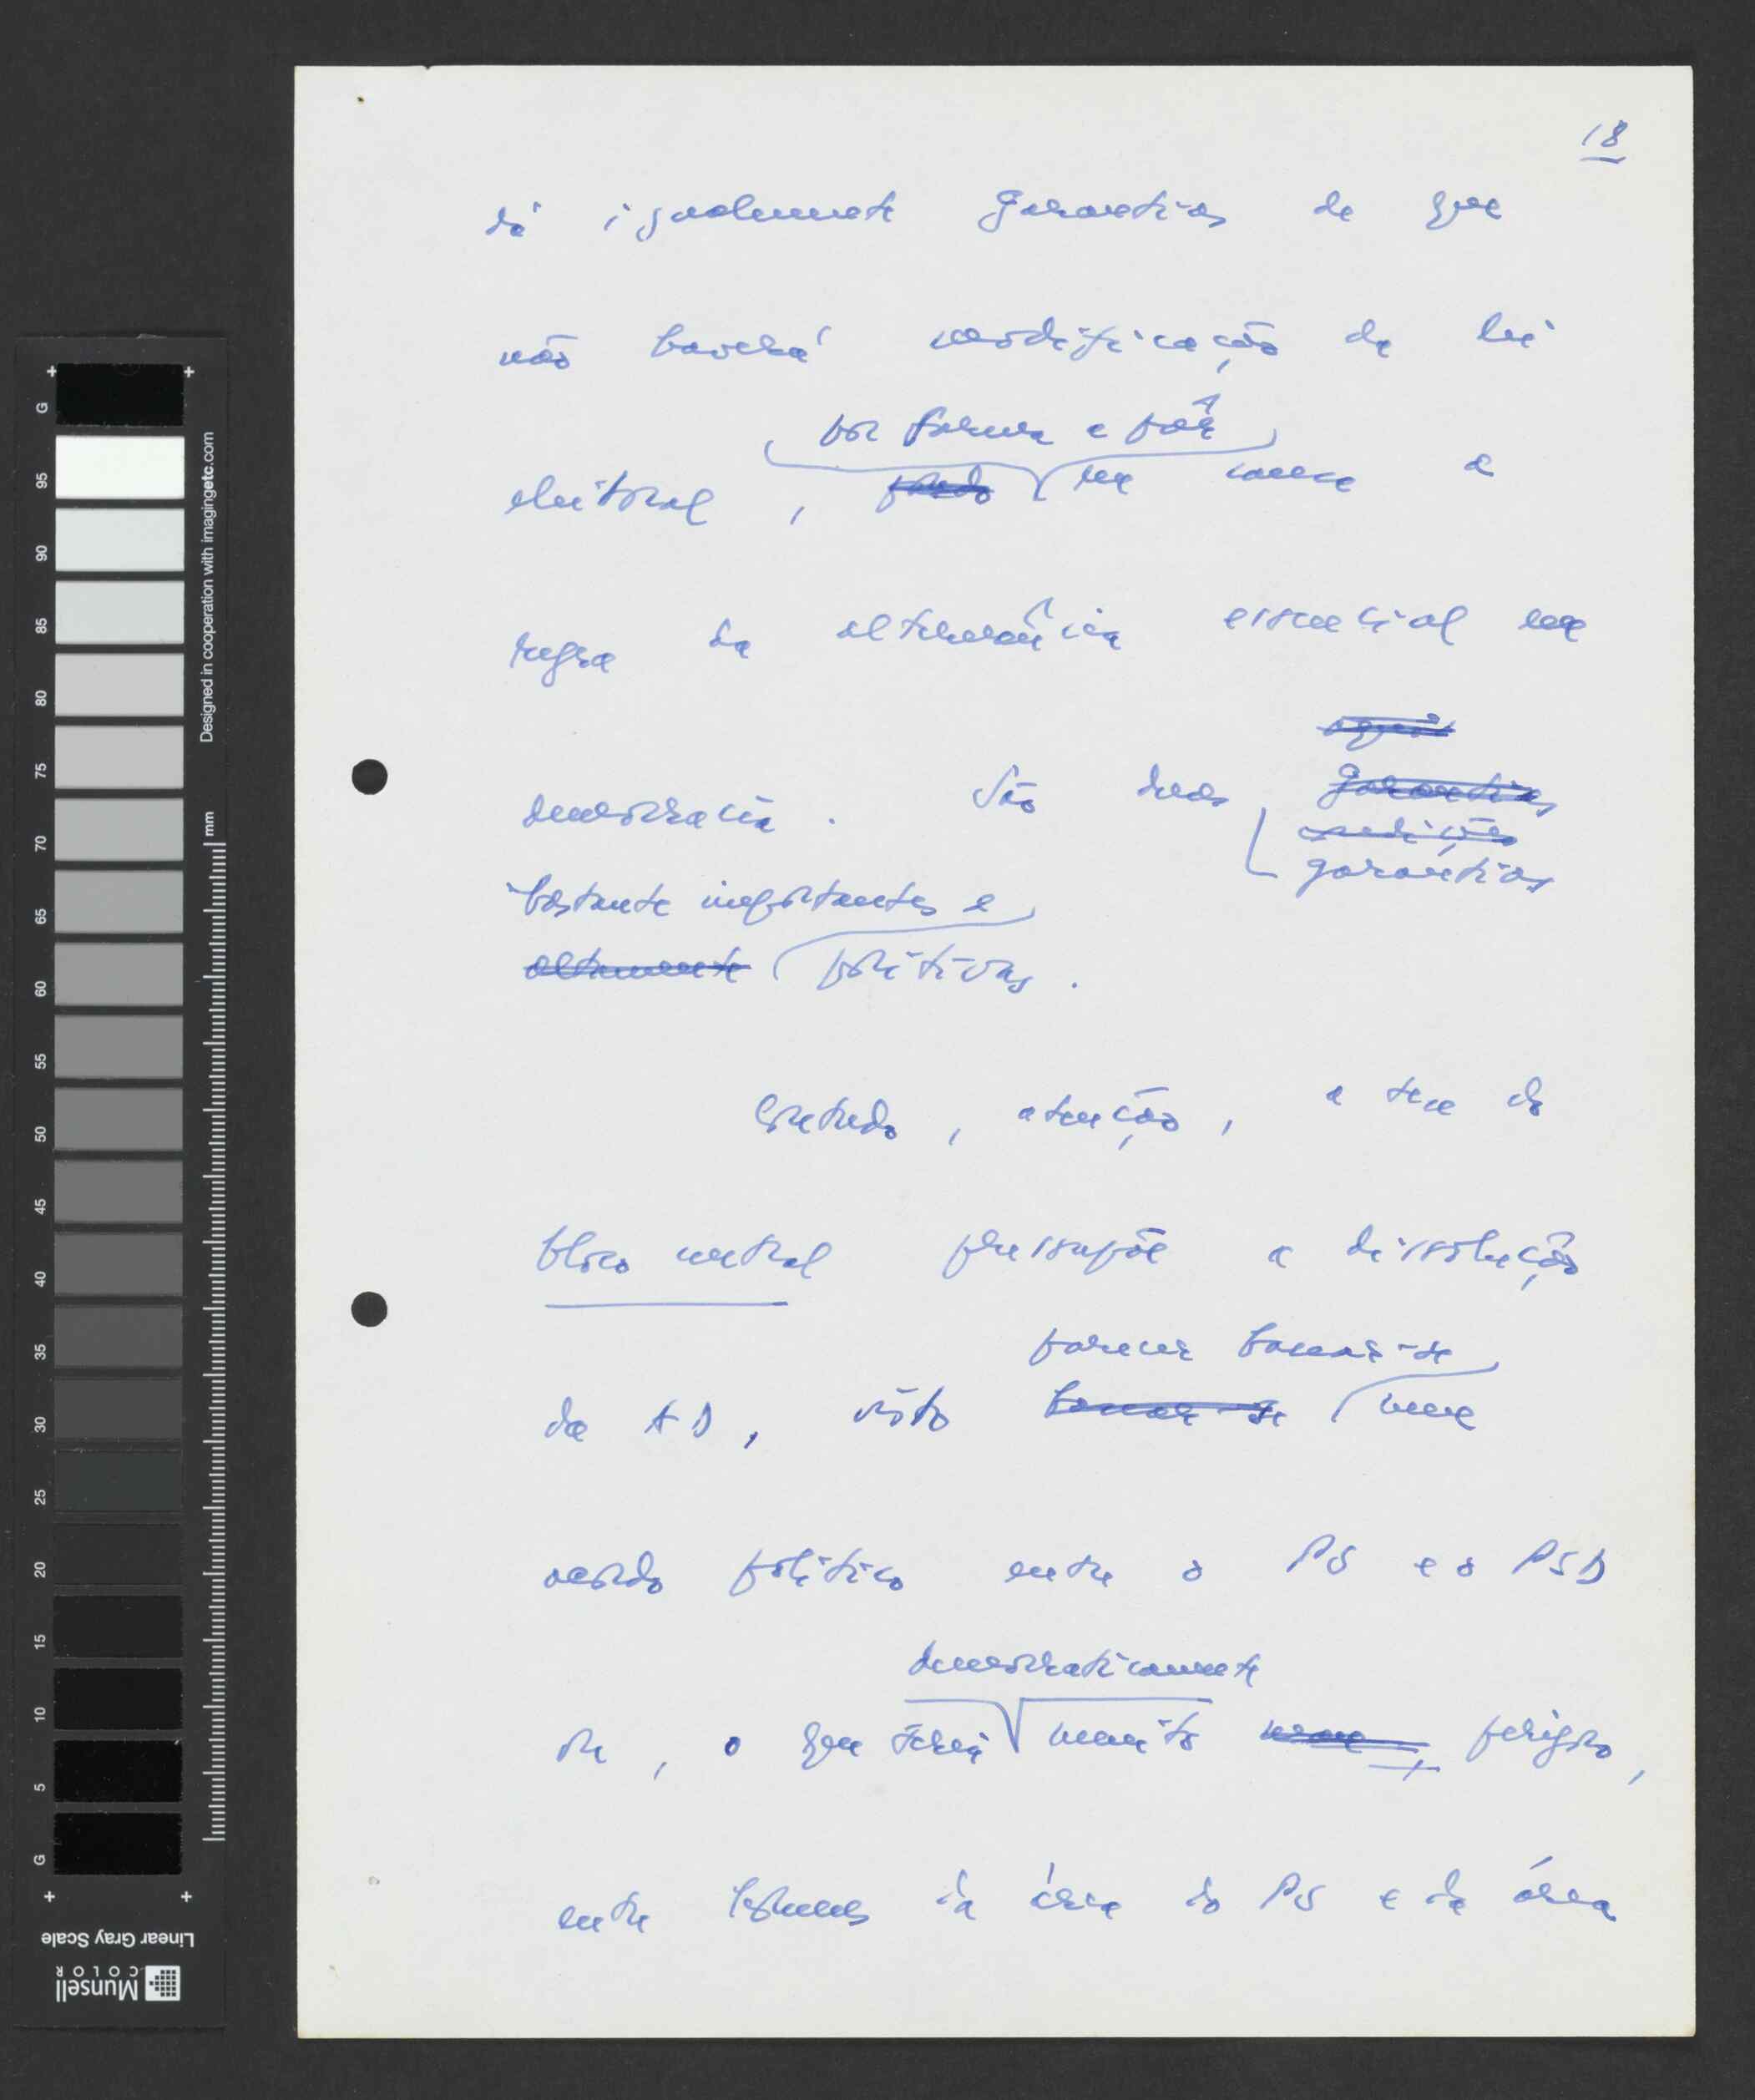 18
dá igualmente garantias de que
não haverá modificação da lei
por forma a pôr
eleitoral, pondo em causa a
regra da alternância essencial em
democracia. São duas garantias
garantias
bastante importantes e
altamente positivas.
Contudo, atenção, a tese do
bloco central pressupõe a dissolução
parecer basear-se
da AD, visto basear-se num
acordo político entre o PS e o PSD
democraticamente
ou, o que seria muito perigoso,
entre homens da área do PS e da área
G
95
90
85
80
75
70
65
60
55
50
45
40
35
30
25
20
15
10
5
G
Designed in cooperation with imagingetc.com
70 mm
Linear Gray Scale
Munsell
COLOR